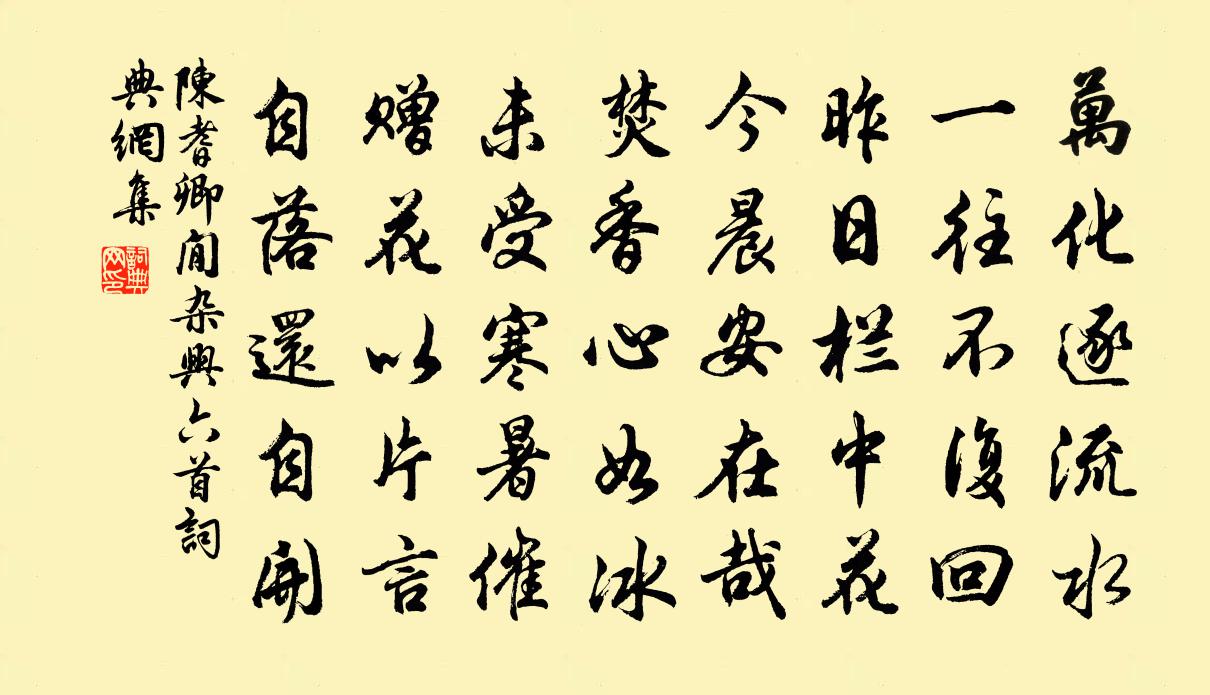 萬化逐流水
一往不復回
昨日栏中花
今晨安在哉
焚香心如冰
未受寒暑催
赠花以片言
自落還自開
陳耆卿閒杂興六首詞
典網集
詞典
网印